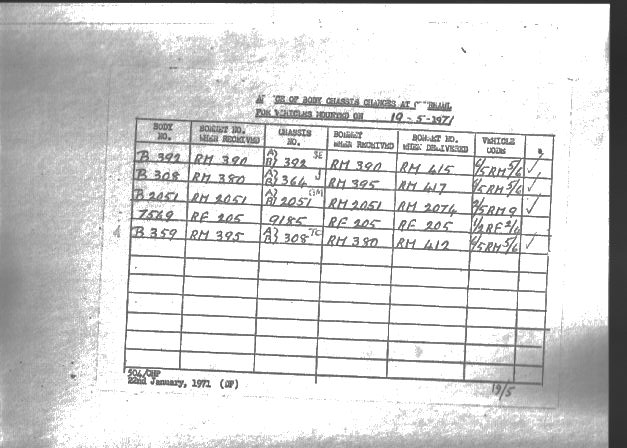 OF BODY CHASSIS CHANGES AT
FOR VEHICLES MOUNTED ON 19-5-1971
BODY NO. BONNET NO. WHEN RECEIVED CHASSIS NO. BONNET WHEN RECEIVED BONNET NO. WHEN DELIVERED VEHICLE CODE
B 392 RM 390 A) B) 392 SE RM 390 RM 415 6/5RM5/6 ✓
B 308 RM 380 A) B) 364 J RM 395 RM 417 6/5RM5/6 ✓
B 2051 RM 2051 A) B) 2051 GM RM 2051 RM 2074 2/5RM9 ✓
7569 RF 205 9185 RF 205 RF 205 1/2RF2/6
B 359 RM 395 A) B) 308 TC RM 380 RM 412 6/5RM5/6 ✓
504/OHP
22nd January, 1971 (DP)
19/5